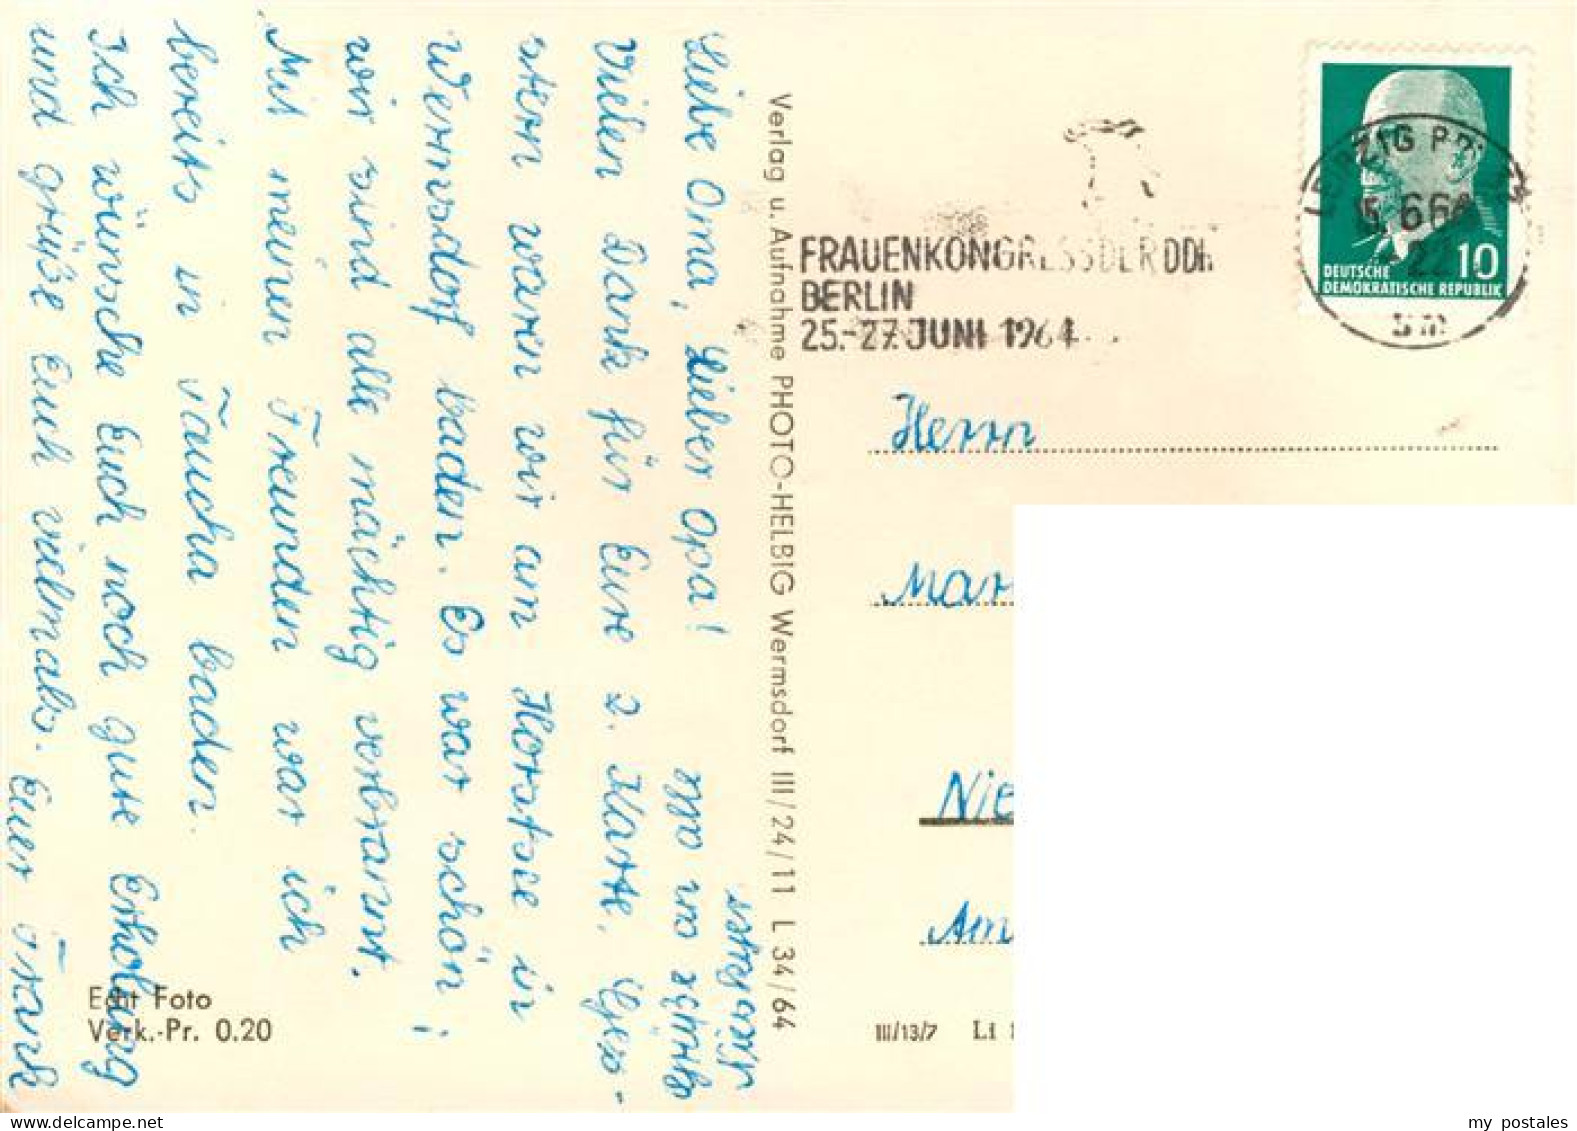 Liebe Oma, Lieber Opa!
Vielen Dank für Eure 2. Karte. Ges-
stern waren wir am Horstsee in
Wermsdorf baden. Es war schön!
wir sind alle mächtig verbrannt.
Mit meinen Freunden war ich
bereits in Taucha baden.
Ich wünsche Euch noch gute Erholung
und grüße Euch vielmals. Euer Frank
Echt Foto
Verk.-Pr. 0.20
Verlag u. Aufnahme PHOTO-HELBIG Wermsdorf III/24/11 L 34/64
FRAUENKONGRESS DER DDR
BERLIN
25.-27. JUNI 1964
LEIPZIG
DEUTSCHE
DEMOKRATISCHE REPUBLIK
10
Herrn
Mar
Nie
Am
III/13/7 Li
my postales